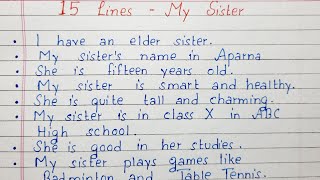 15 Lines - My Sister
• I have an elder sister.
• My sister's name in Aparna
• She is fifteen years old.
• My sister is smart and healthy.
• She is quite tall and charming.
• My sister is in class X in ABC
High school.
• She is good in her studies.
• My sister plays games like
Badminton and Table Tennis.